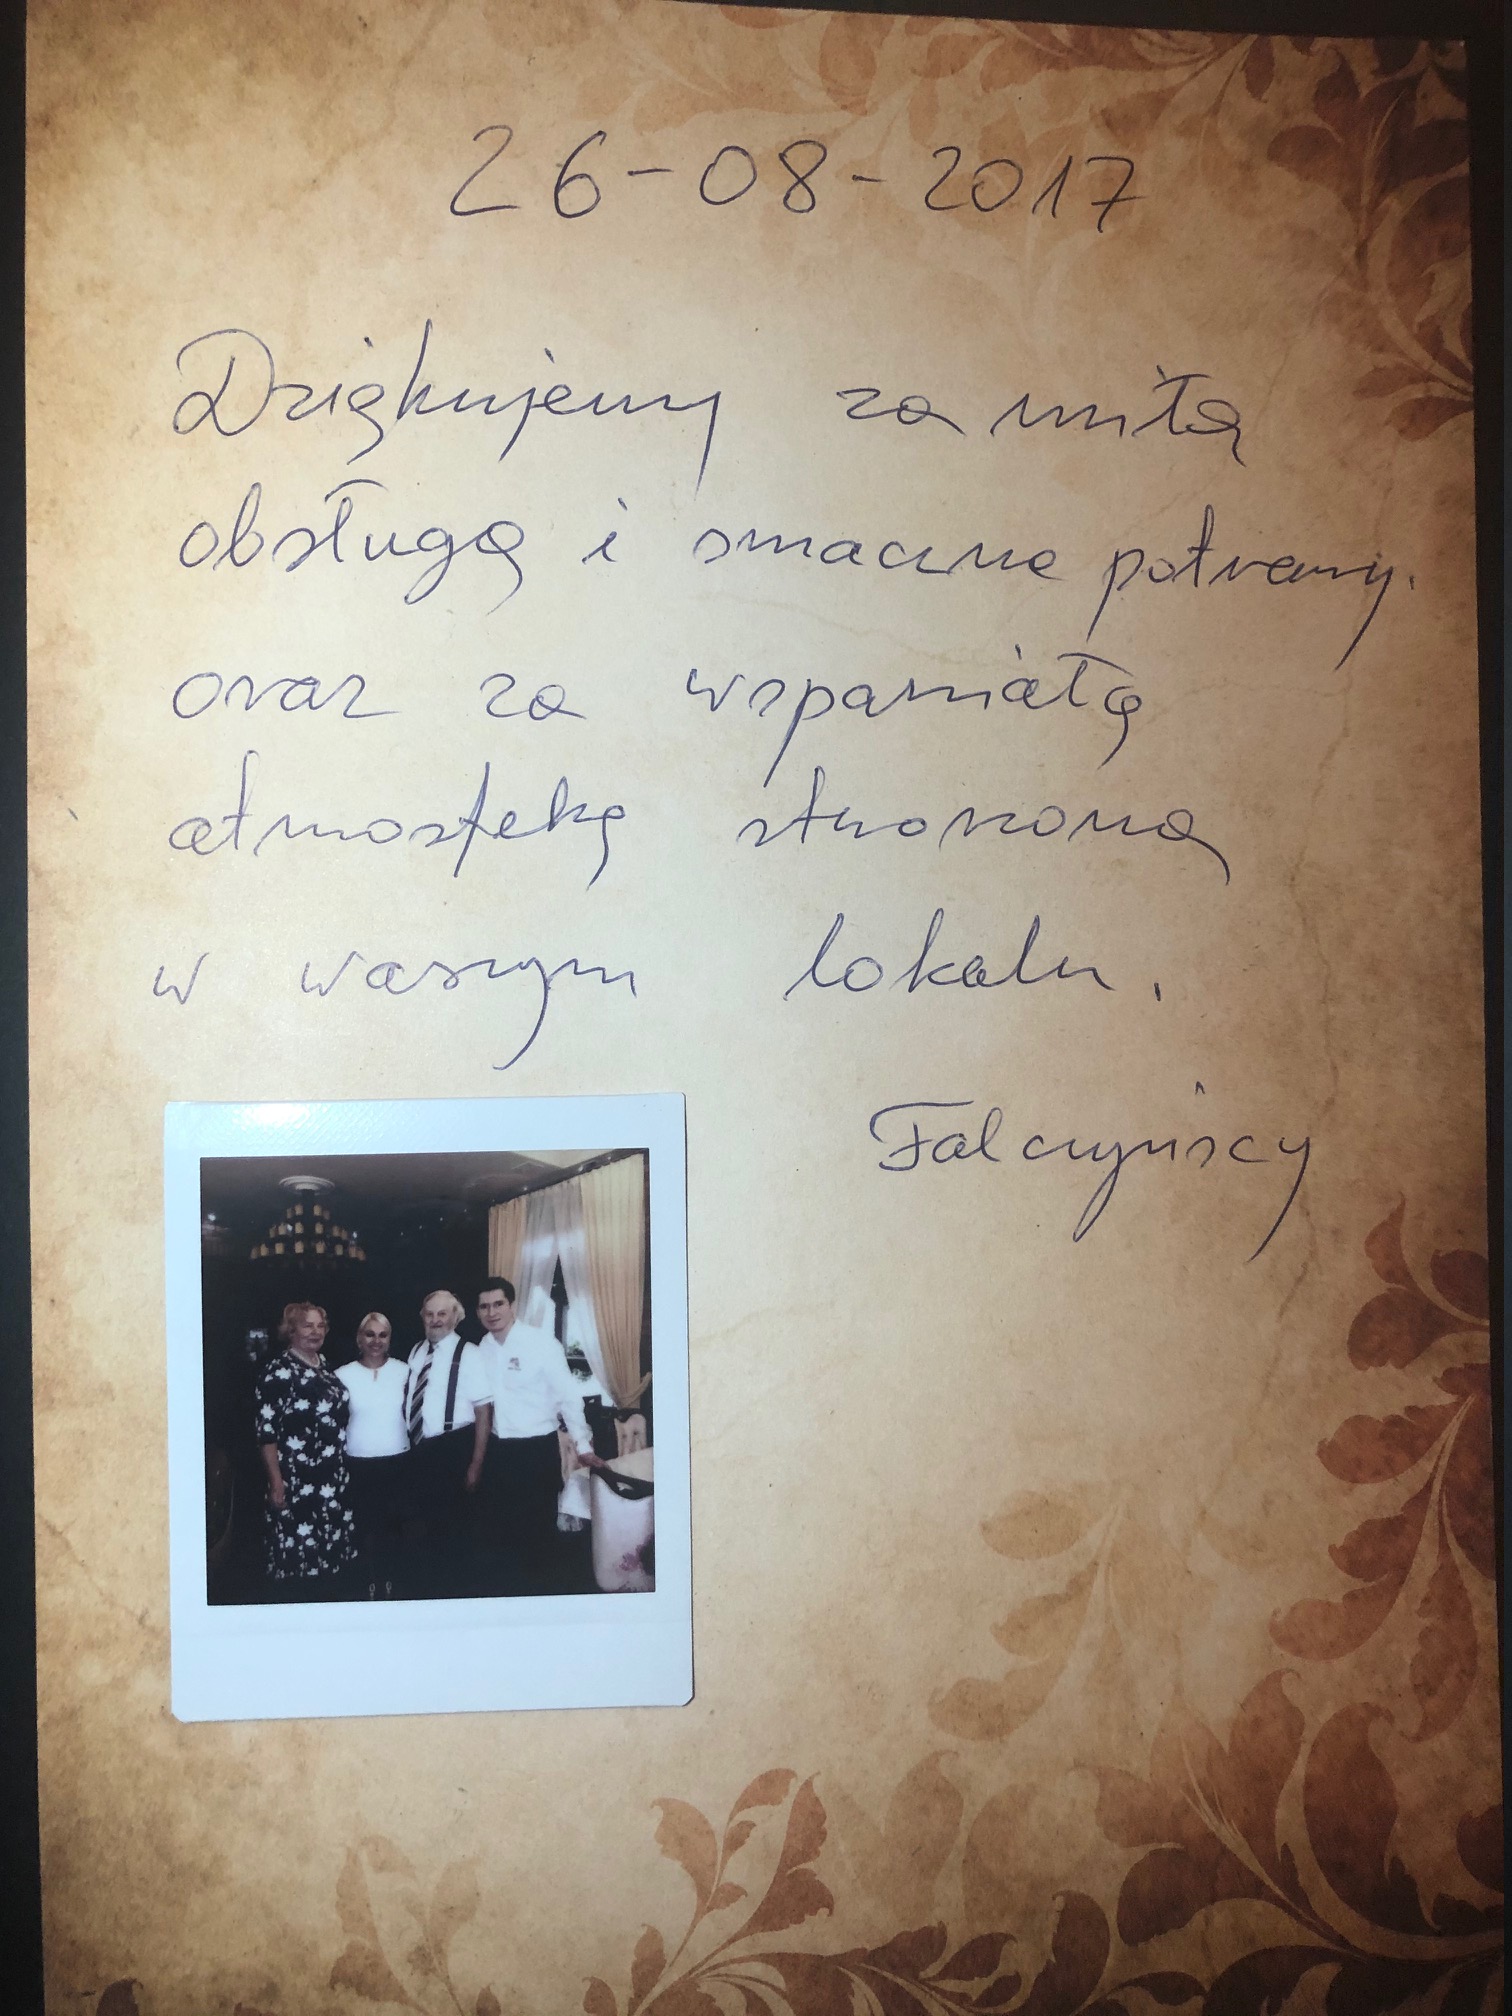 26-08-2017
Dziękujemy za miłą
obsługę i smaczne potrawy.
oraz za wspaniałą
atmosferę stworzoną
w waszym lokalu.
Falczyńscy